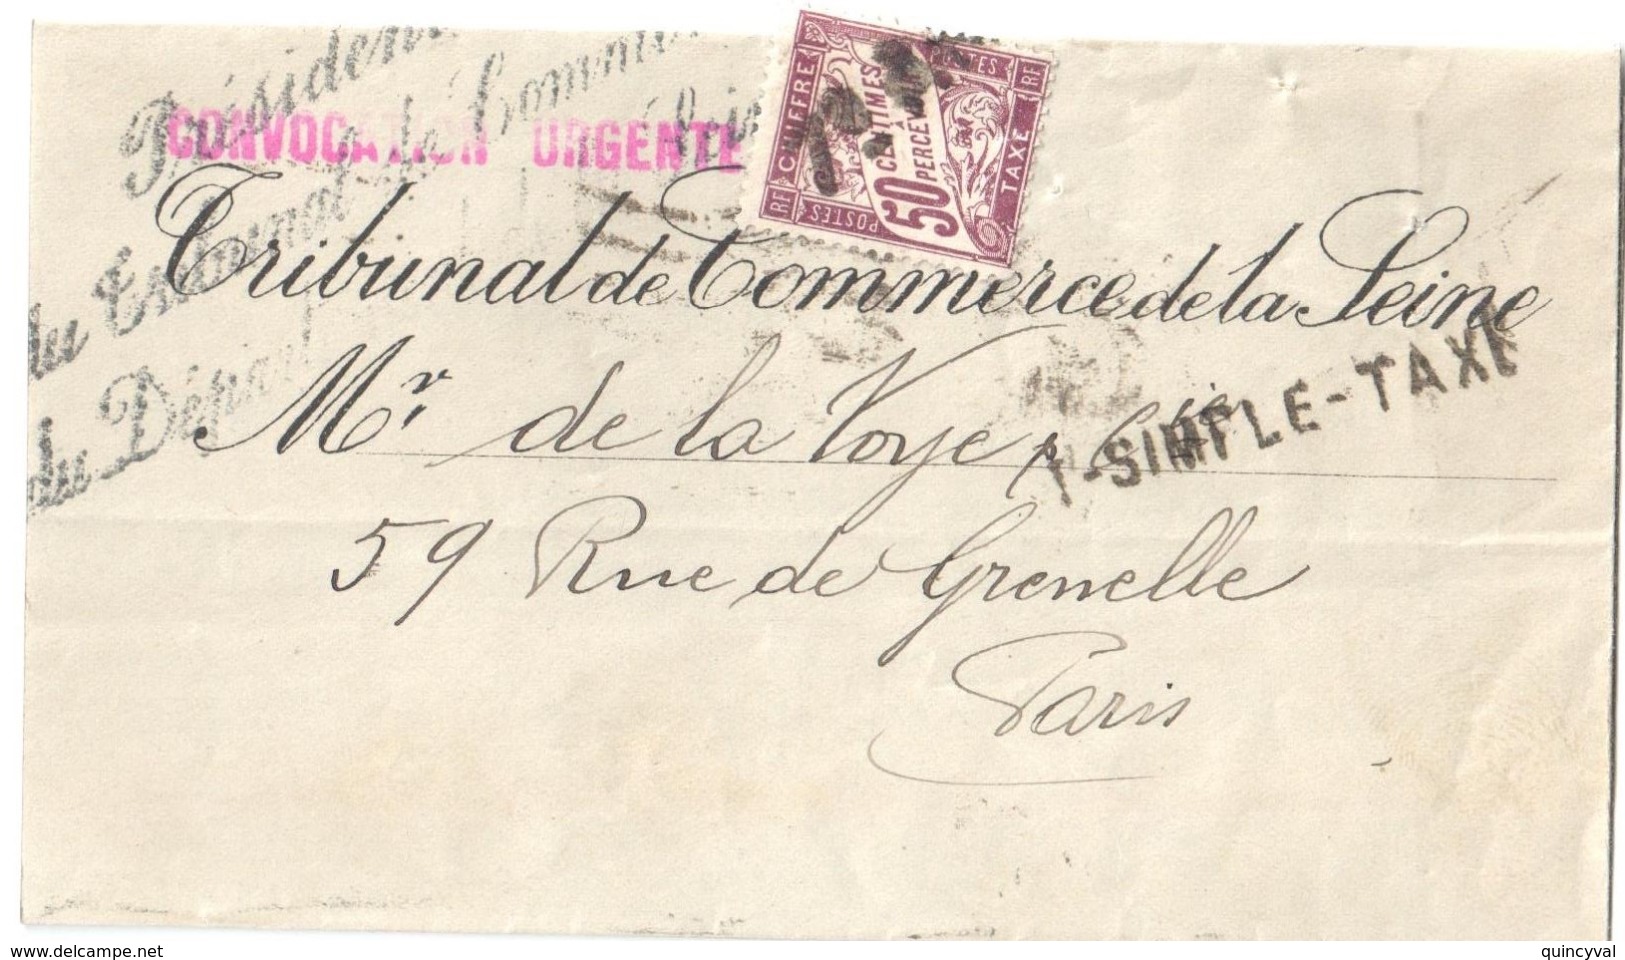 Président
du Tribunal de Commerce
du Départ
CONVOCATION URGENTE
RF POSTES RF
CHIFFRE TAXE
50 CENTIMES
À
PERCEVOIR
RF POSTES
Tribunal de Commerce de la Seine
Mr. de la Voye & Cie
T-SIMPLE-TAXE
59 Rue de Grenelle
Paris
delcampe.net
quincyval